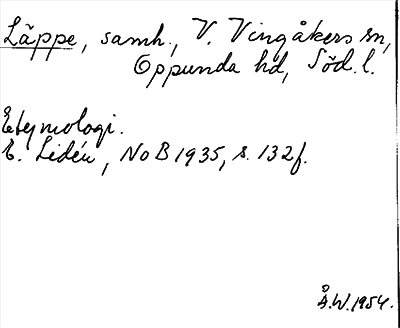 Läppe, samh., V. Vingåkers sn,
Oppunda hd, Söd. l.
Etymologi.
E. Lidén, NoB 1935, s. 132f.
Å.W. 1954.